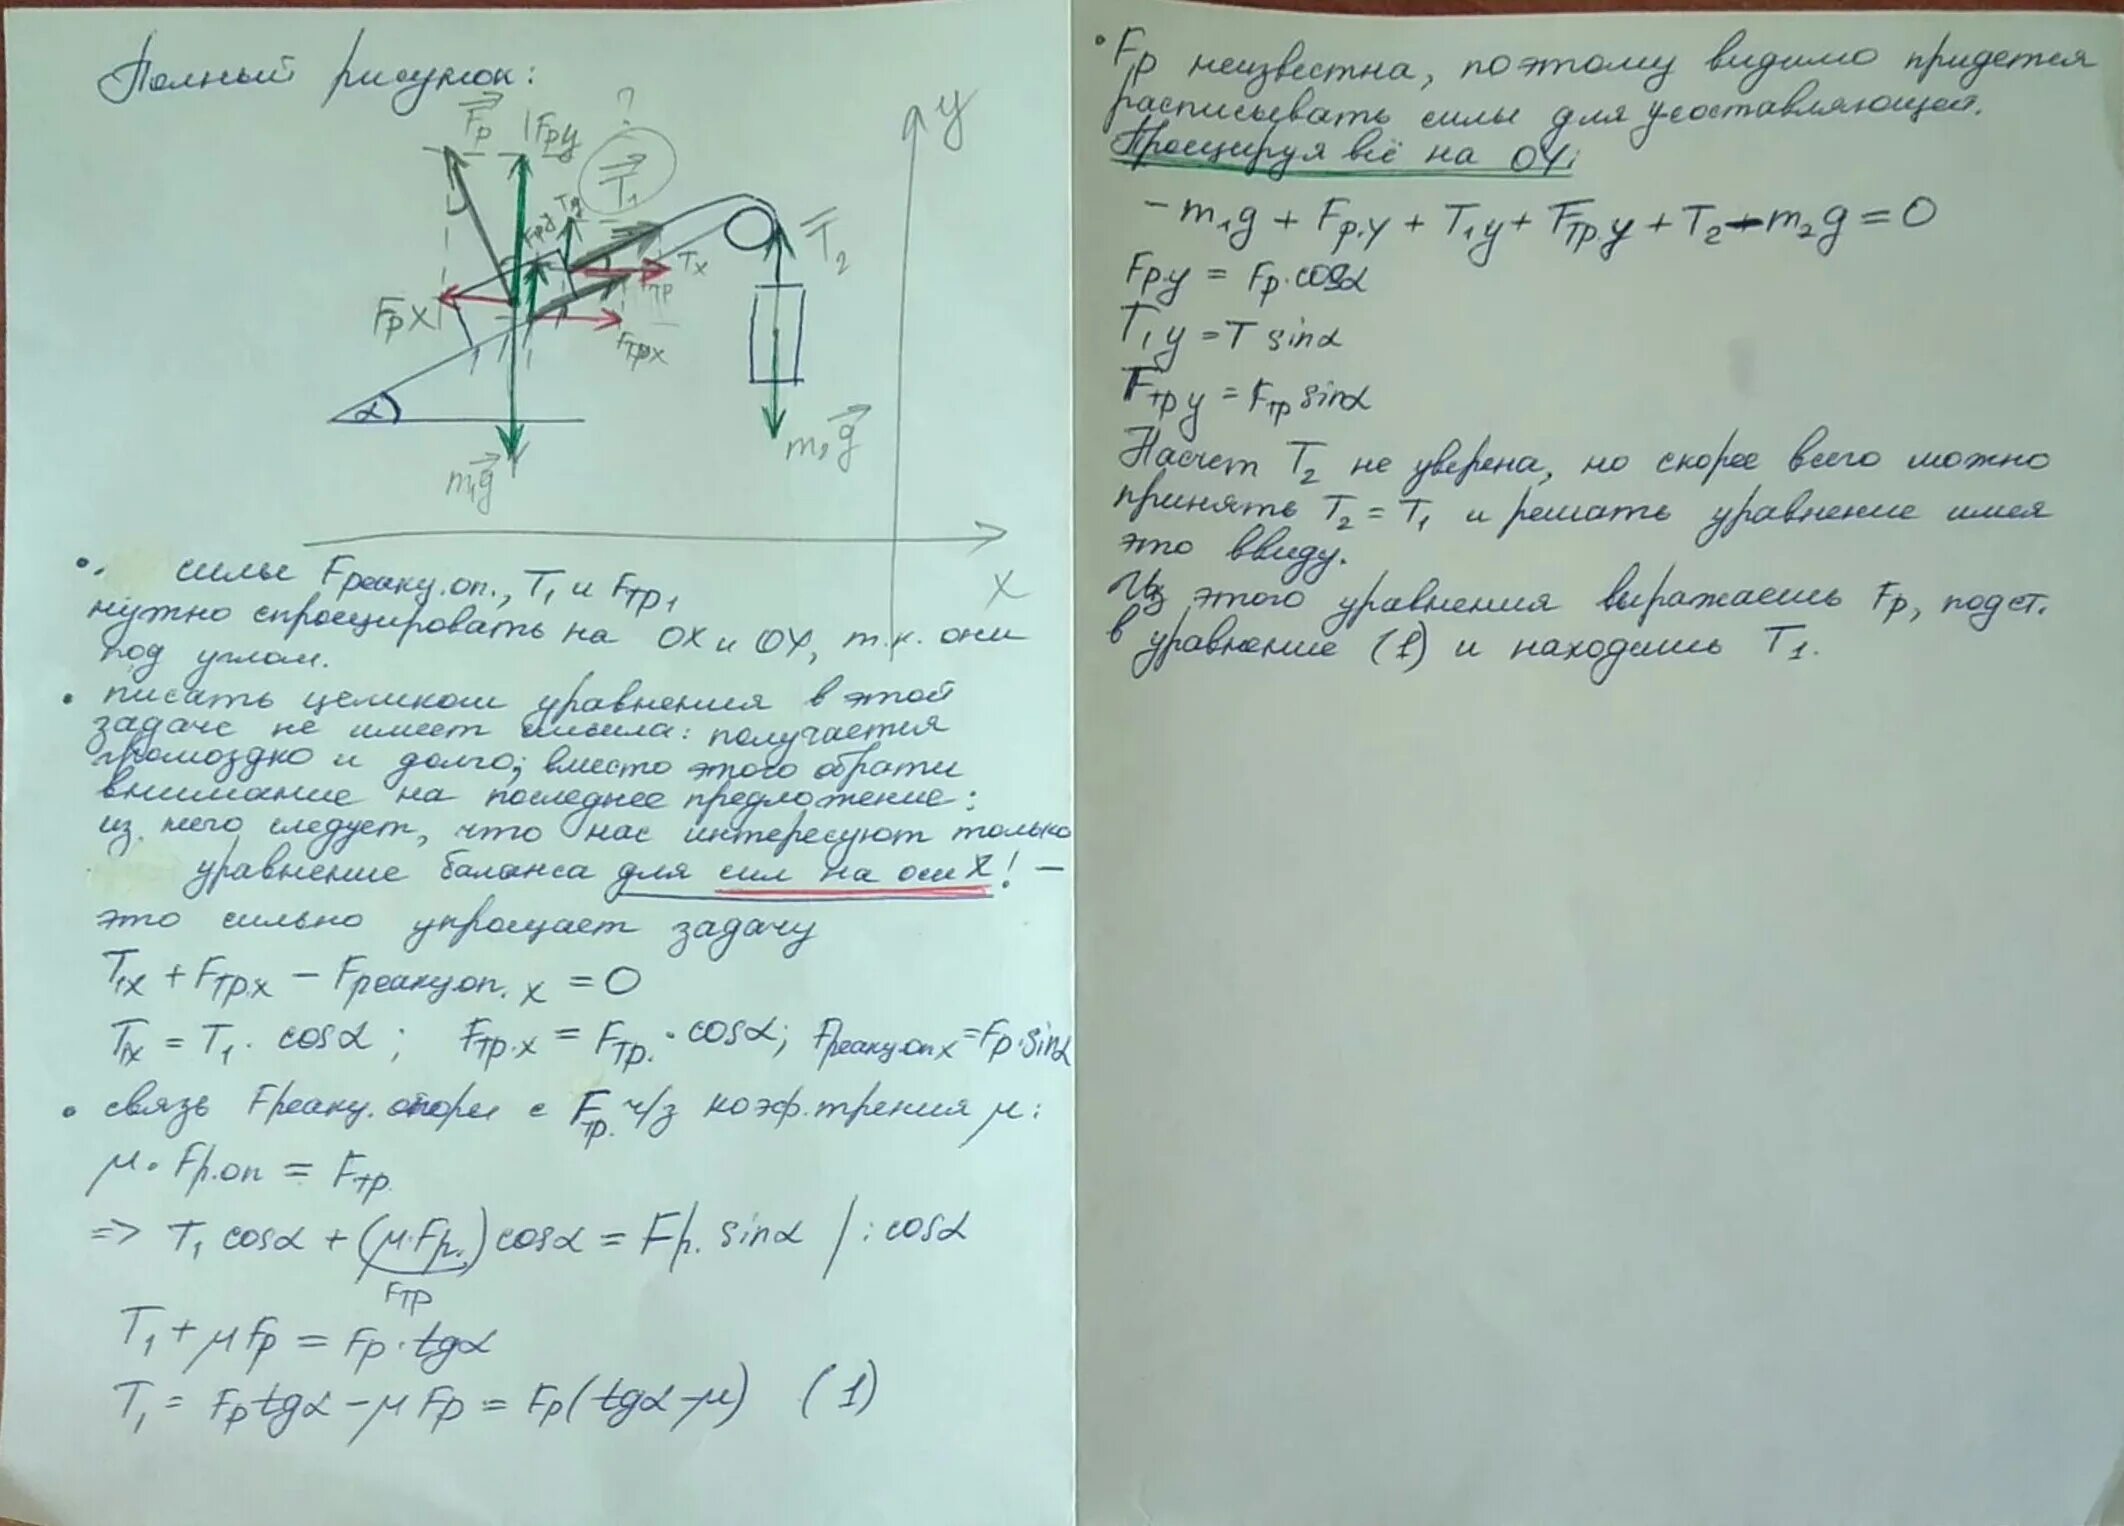 Полный рисунок:
Fр
Fр y
?
T₁
y
Tу
Fтр y
T₂
Tx
Fтр
Fр x
Fтр x
α
m₂g
m₁g
x
• силы Fреакц.оп., T₁ и Fтр₁
нужно спроецировать на OX и OY, т.к. они
под углом.
• писать целиком уравнения в этой
задаче не имеет смысла: получается
громоздко и долго; вместо этого обрати
внимание на последнее предложение:
из него следует, что нас интересуют только
уравнение баланса для сил на оси X! —
это сильно упрощает задачу
T₁x + Fтр.x − Fреакц.оп. x = 0
T₁x = T₁ · cosα ; Fтр.x = Fтр. · cosα; Fреакц.оп x = Fр · sinα
• связь Fреакц. опоры с Fтр. ч/з коэф. трения μ:
μ · Fр.оп = Fтр.
=> T₁ cosα + (μ·Fр.) cosα = Fр. sinα / : cosα
Fтр
T₁ + μFр = Fр · tgα
T₁ = Fр tgα − μ Fр = Fр (tgα − μ) (1)
• Fр неизвестна, поэтому видимо придется
расписывать силы для y-составляющей.
Проецируя всё на OY:
− m₁g + Fр.y + T₁y + Fтр.y + T₂ − m₂g = 0
Fр.y = Fр · cosα
T₁y = T sinα
Fтр y = Fтр sinα
Насчет T₂ не уверена, но скорее всего можно
принять T₂ = T₁ и решать уравнение имея
это ввиду.
Из этого уравнения выражаешь Fр, подст.
в уравнение (1) и находишь T₁.